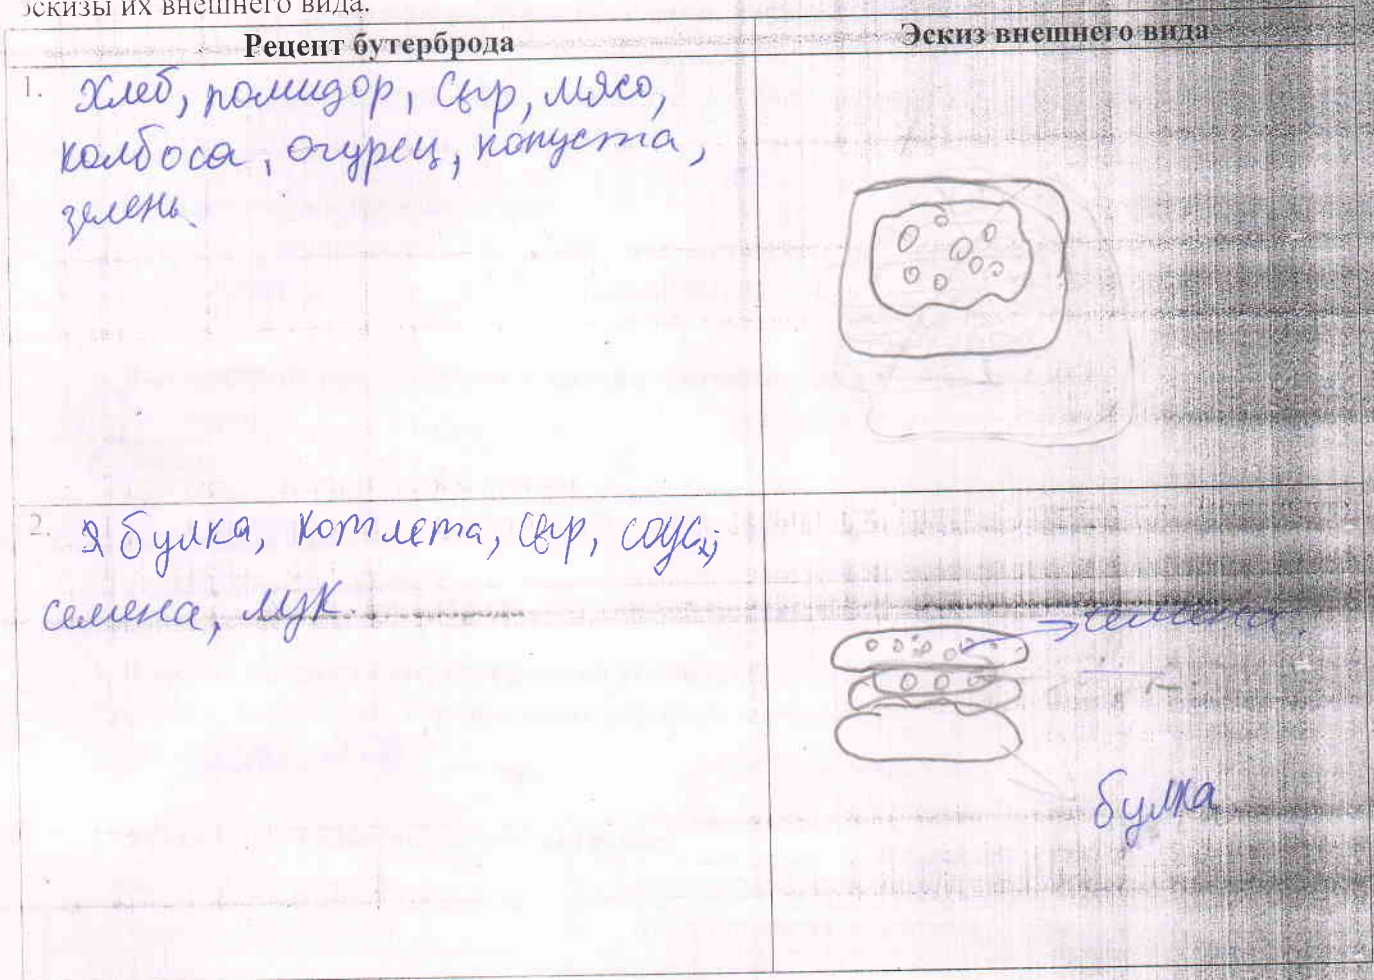 эскизы их внешнего вида.
Рецепт бутерброда
Эскиз внешнего вида
1.
Хлеб, помидор, сыр, мясо,
колбоса, огурец, копуста,
зелень
2.
Я булка, котлета, сыр, соус,
семена, лук.
семена.
булка